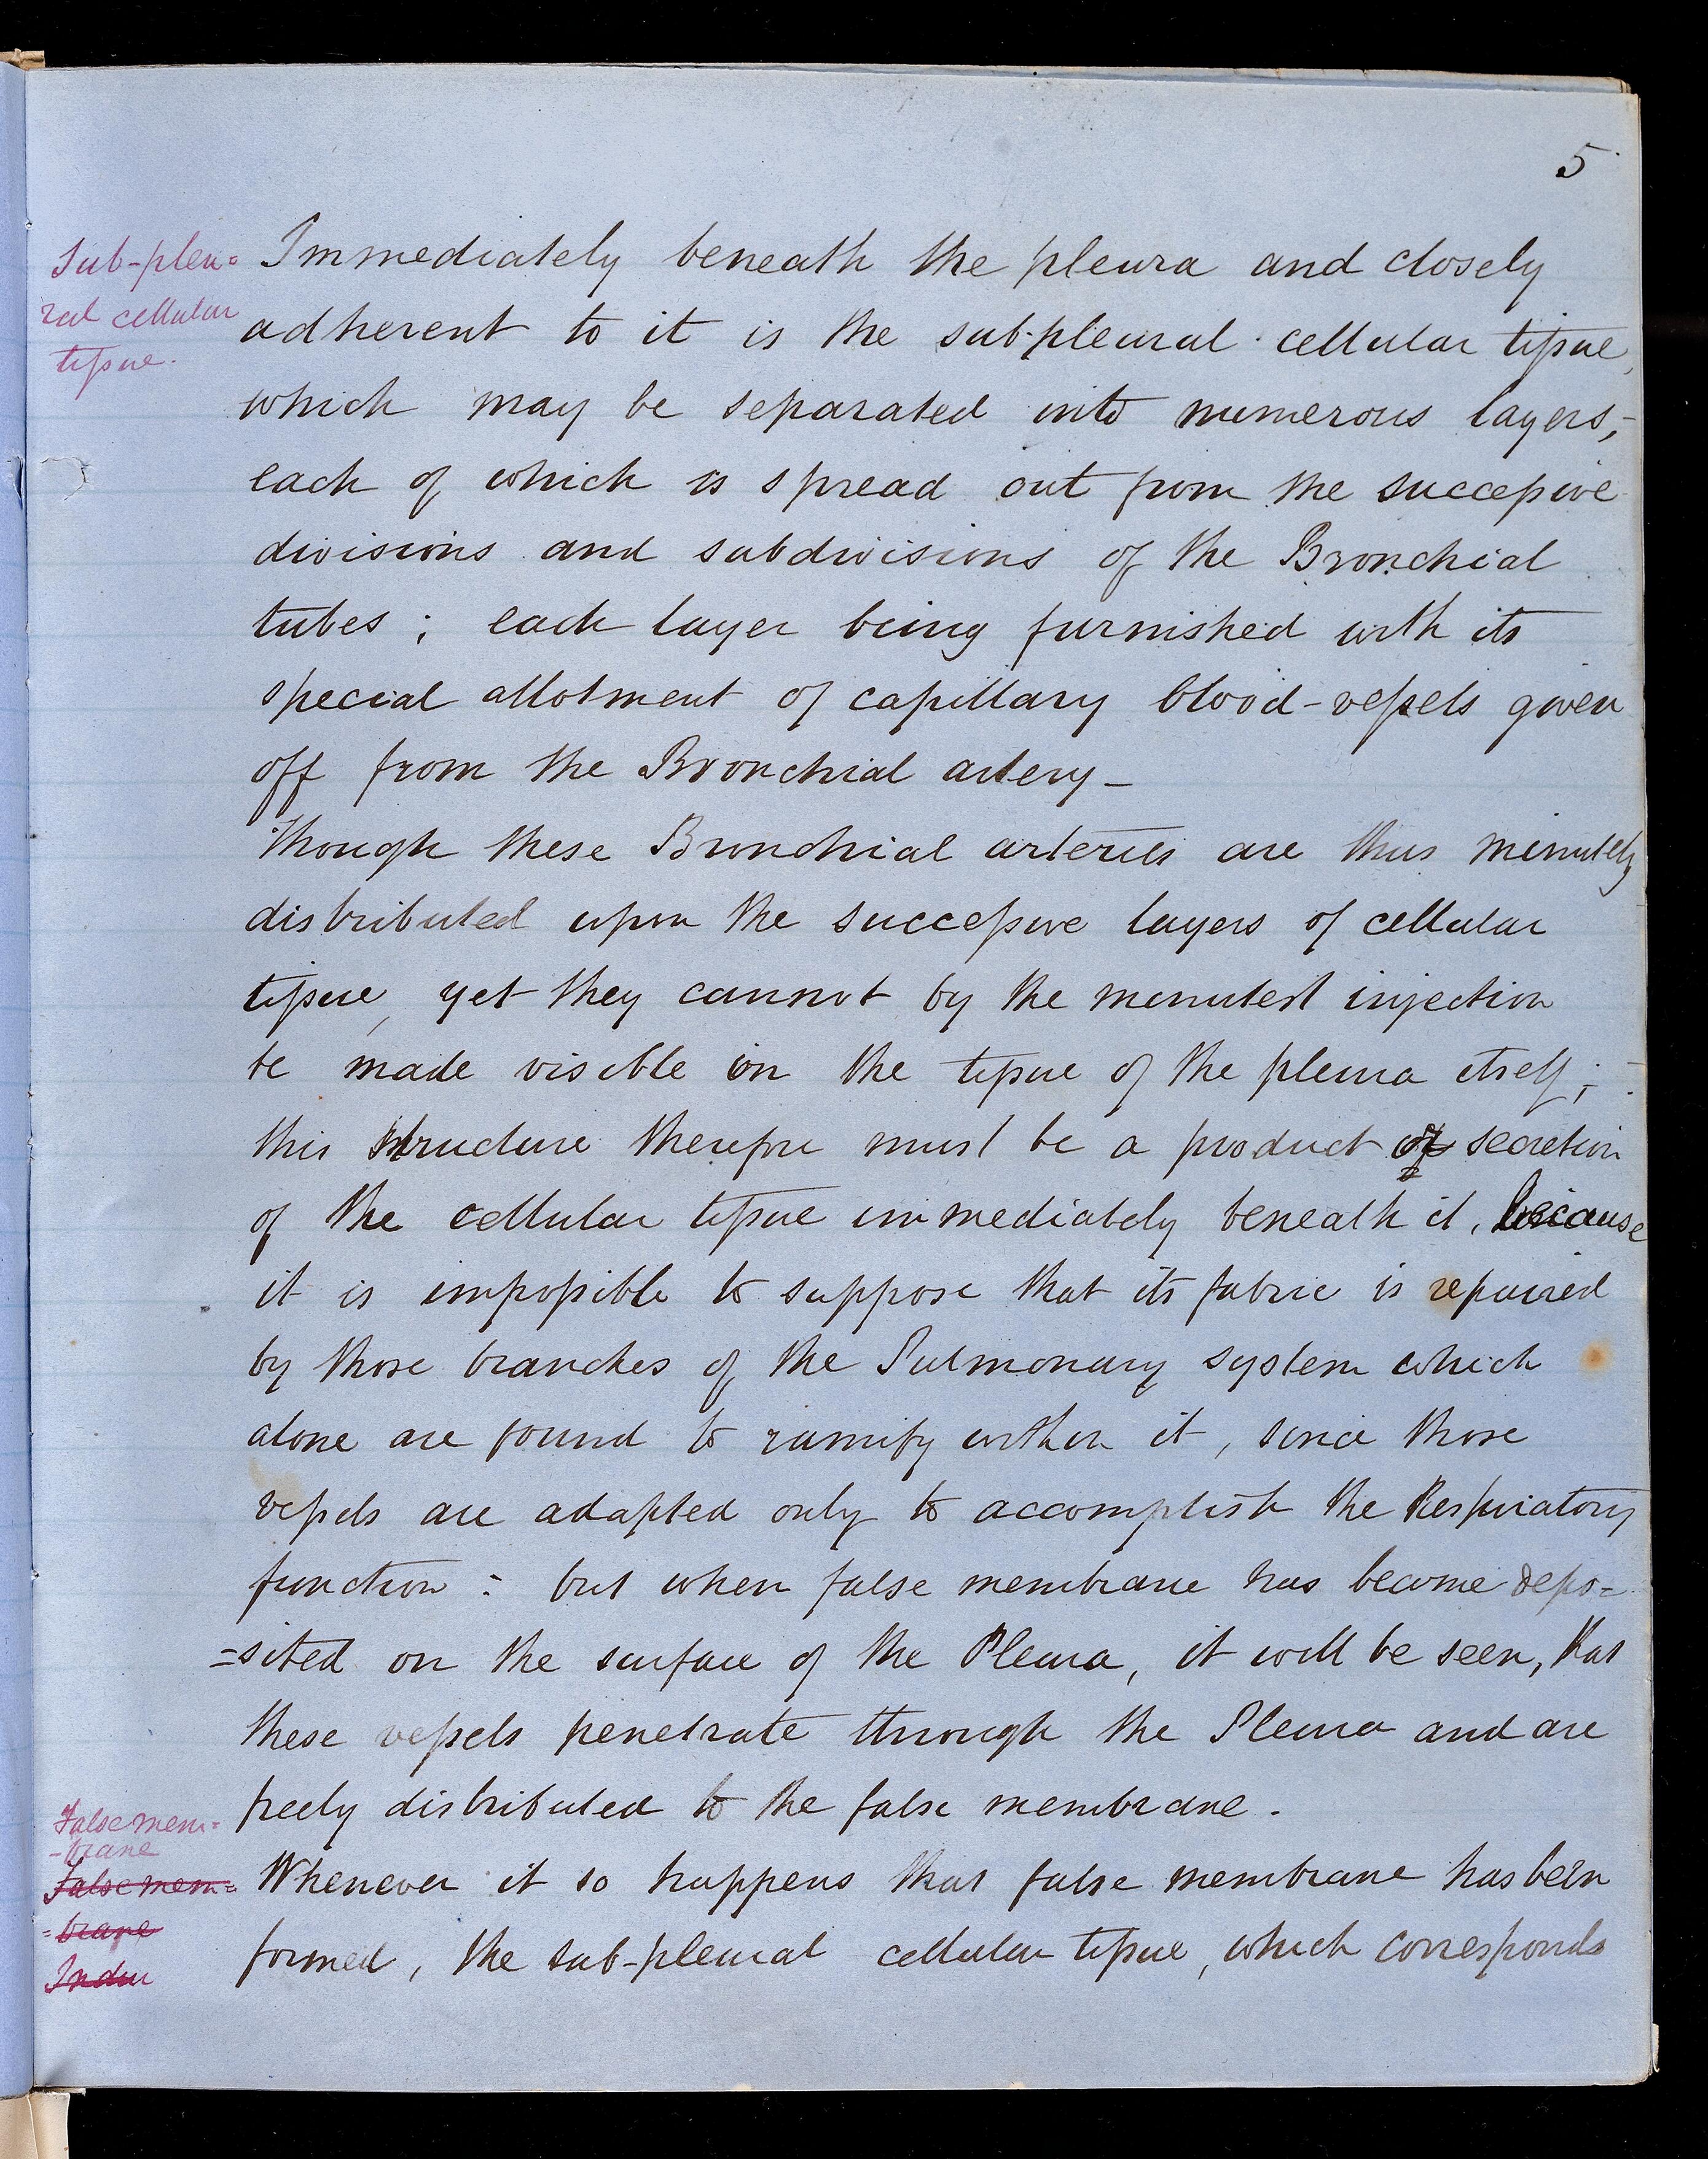 5
Sub-pleu=
ral cellular
tissue.
Immediately beneath the pleura and closely
adherent to it is the sub-pleural cellular tissue,
which may be separated into numerous layers,
each of which is spread out from the successive
divisions and subdivisions of the Bronchial
tubes ; each layer being furnished with its
special allotment of capillary blood-vessels given
off from the Bronchial artery_
Though these Bronchial arteries are thus minutely
distributed upon the successive layers of cellular
tissue, yet they cannot by the minutest injection
be made visible in the tissue of the pleura itself ;
this structure therefore must be a product of secretion
of the cellular tissue immediately beneath it, because
it is impossible to suppose that its fabric is repaired
by those branches of the Pulmonary system which
alone are found to ramify within it, since those
vessels are adapted only to accomplish the Respiratory
function : but when false membrane has become depo=
=sited on the surface of the Pleura, it will be seen, that
these vessels penetrate through the Pleura and are
freely distributed to the false membrane .
False mem=
-brane
False mem=
=brane
Indu
Whenever it so happens that false membrane has been
formed, the sub-pleural cellular tissue, which corresponds